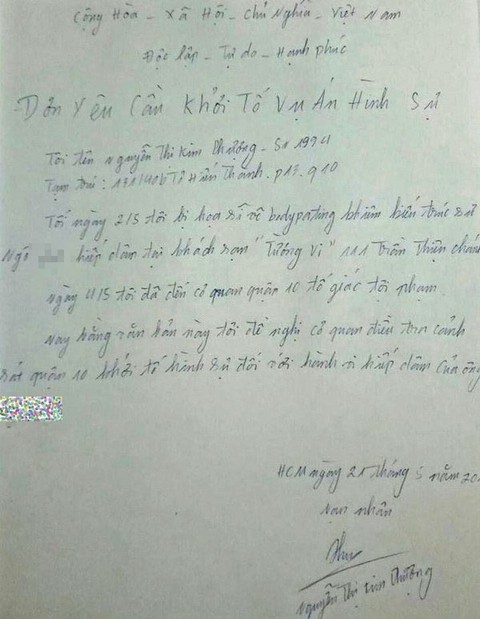 Cộng Hòa - Xã Hội - Chủ Nghĩa - Việt Nam
Độc lập - Tự do - Hạnh phúc
Đơn Yêu Cầu Khởi Tố Vụ Án Hình Sự
Tôi tên Nguyễn Thị Kim Phượng - Sn 1994
Tạm trú: Tô Hiến Thành. p13. q10
Tối ngày 2/5 tôi bị họa sĩ vẽ bodypating khiêm kiến trúc sư
Ngô hiếp dâm tại khách sạn "Tường Vi" 111 Trần Thiện chánh
ngày 4/5 tôi đã đến cơ quan quận 10 tố giác tội phạm.
nay bằng văn bản này tôi đề nghị cơ quan điều tra cảnh
sát quận 10 khởi tố hình sự đối với hành vi hiếp dâm của ông
HCM ngày 21 tháng 5 năm 20
nạn nhân
Nguyễn Thị Kim Phượng